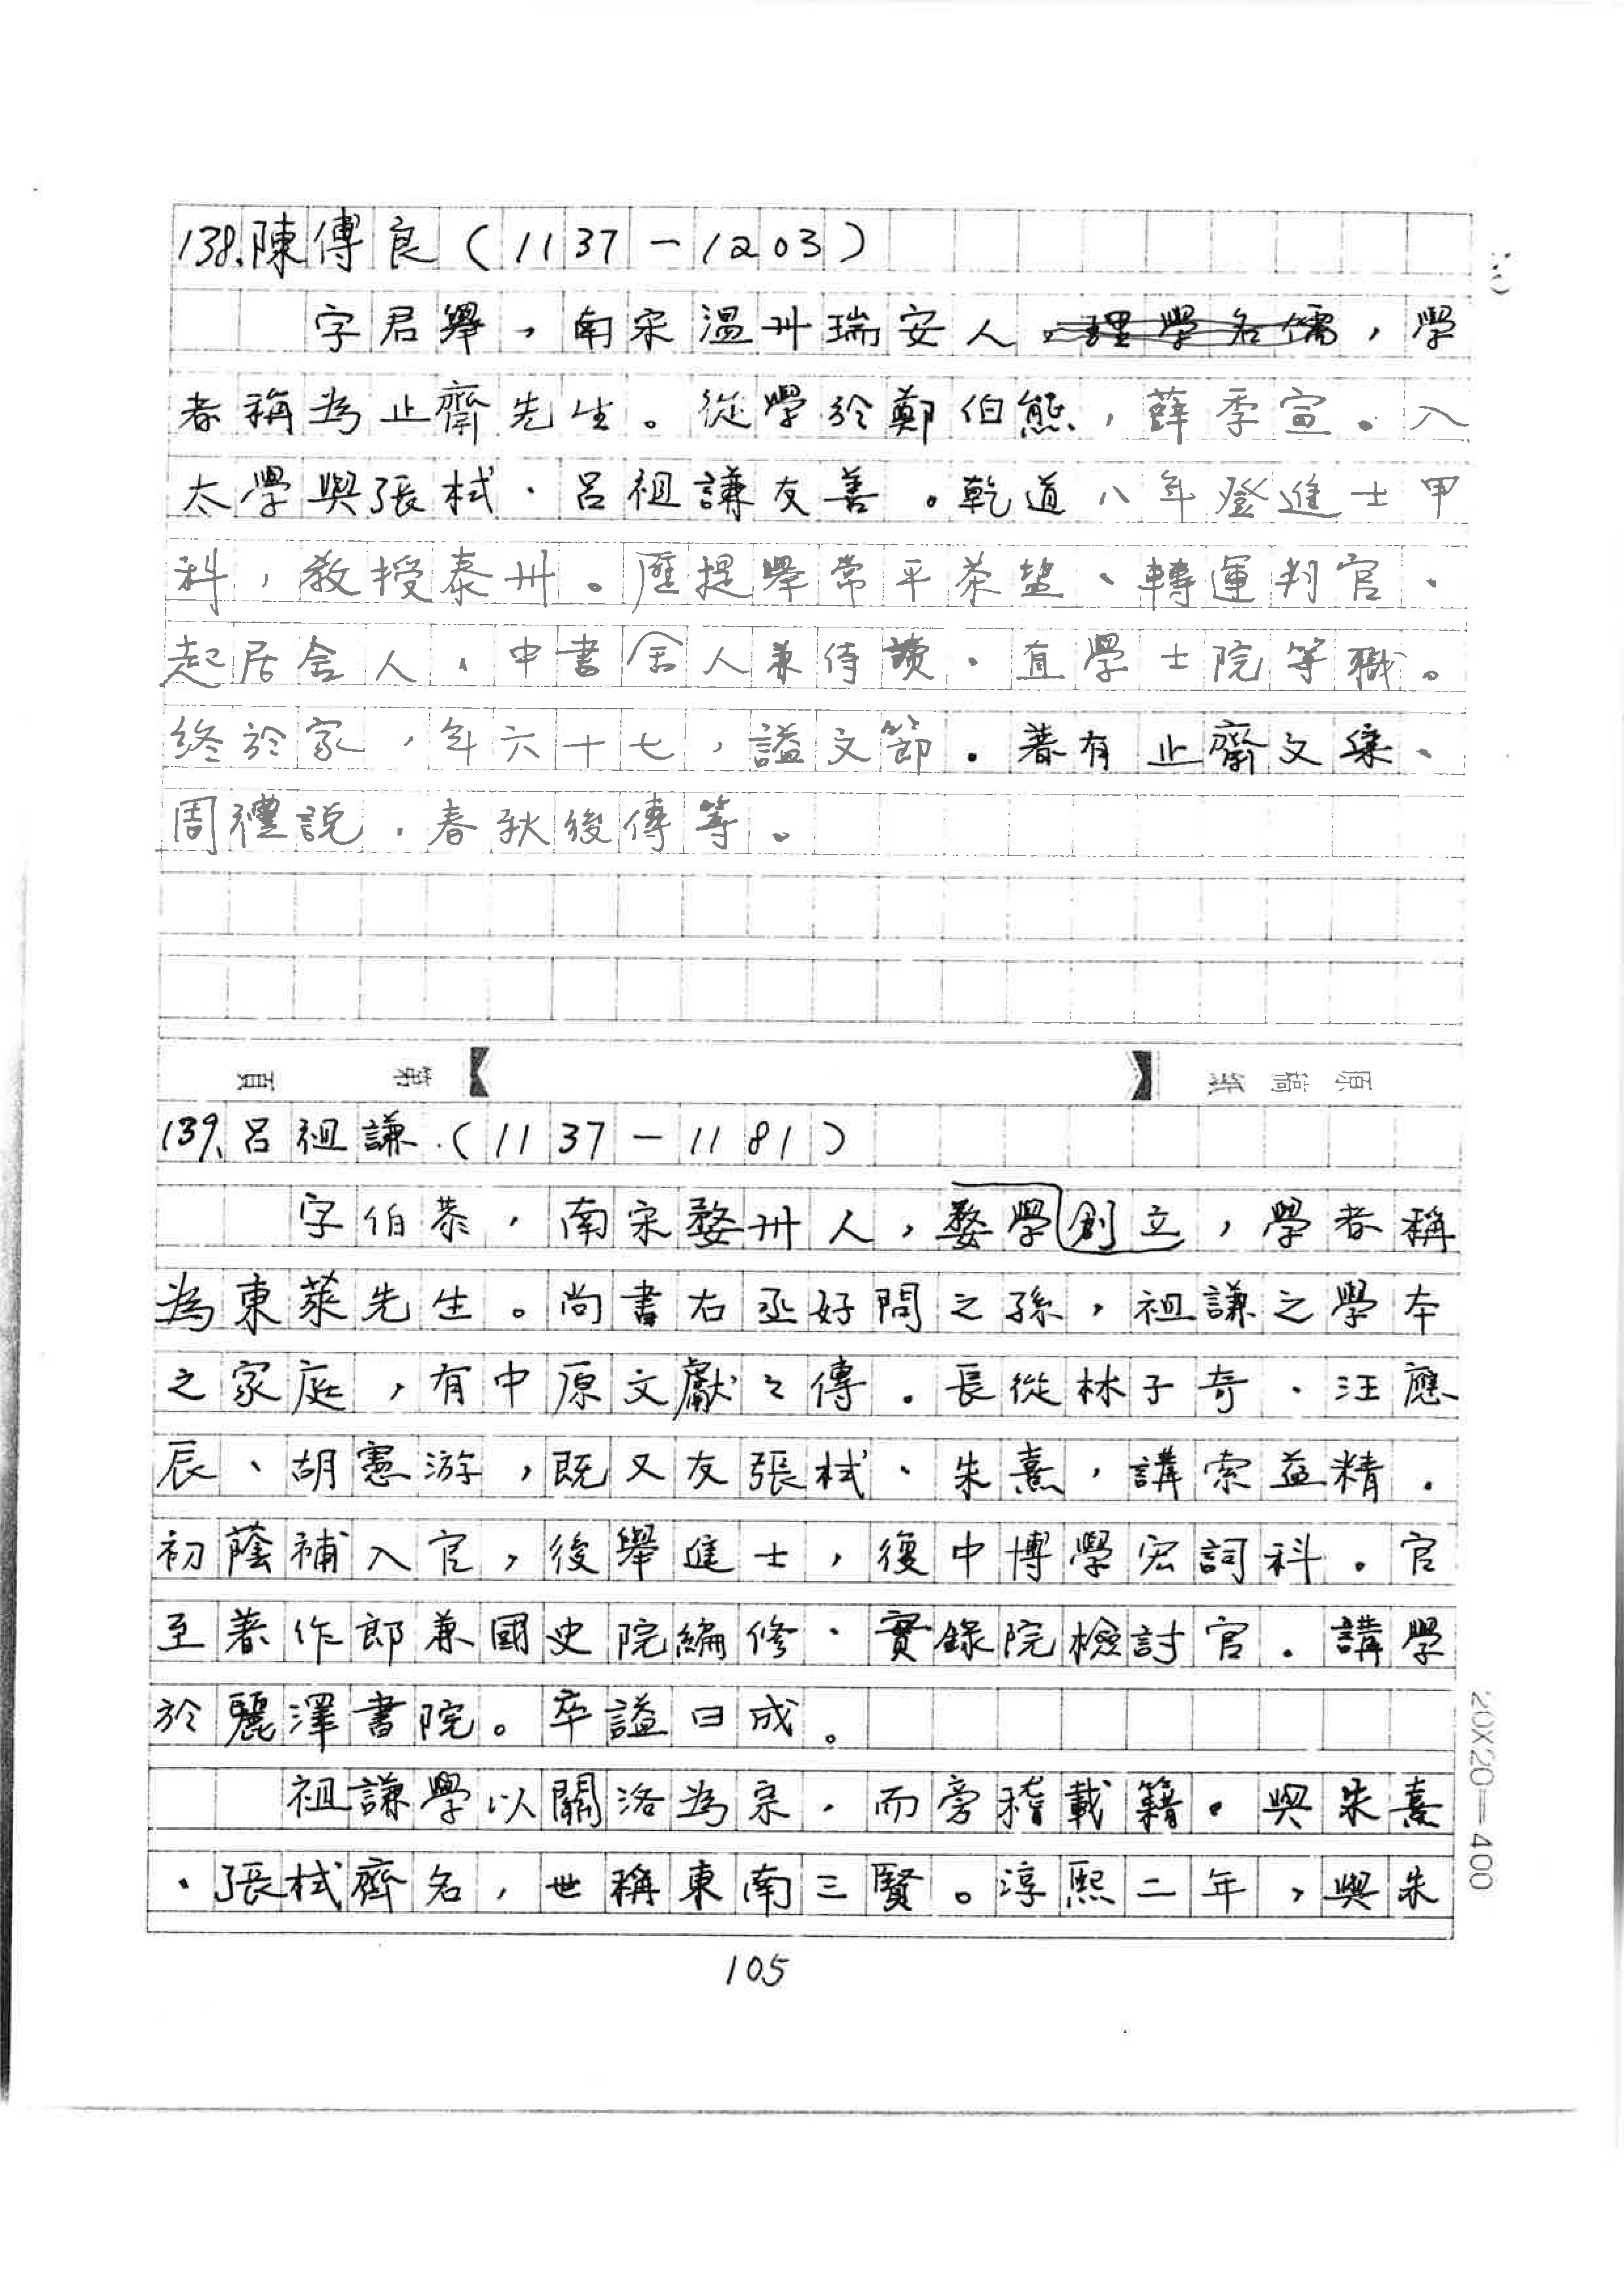 138.陳傅良(1137-1203)
字君舉,南宋溫州瑞安人,理學名儒,學
者稱為止齋先生。從學於鄭伯熊,薛季宣。入
太學與張栻、呂祖謙友善。乾道八年登進士甲
科,教授泰州。歷提舉常平茶鹽、轉運判官、
起居舍人、中書舍人兼侍讀、直學士院等職。
終於家,年六十七,謚文節。著有止齋文集、
周禮說、春秋後傳等。
原稿紙 第 頁
139.呂祖謙(1137-1181)
字伯恭,南宋婺州人,婺學創立,學者稱
為東萊先生。尚書右丞好問之孫,祖謙之學本
之家庭,有中原文獻之傳。長從林子奇、汪應
辰、胡憲游,既又友張栻、朱熹,講索益精。
初蔭補入官,後舉進士,復中博學宏詞科。官
至著作郎兼國史院編修、實錄院檢討官。講學
於麗澤書院。卒謚曰成。
祖謙學以關洛為宗,而旁稽載籍。與朱熹
、張栻齊名,世稱東南三賢。淳熙二年,與朱
20X20=400
105